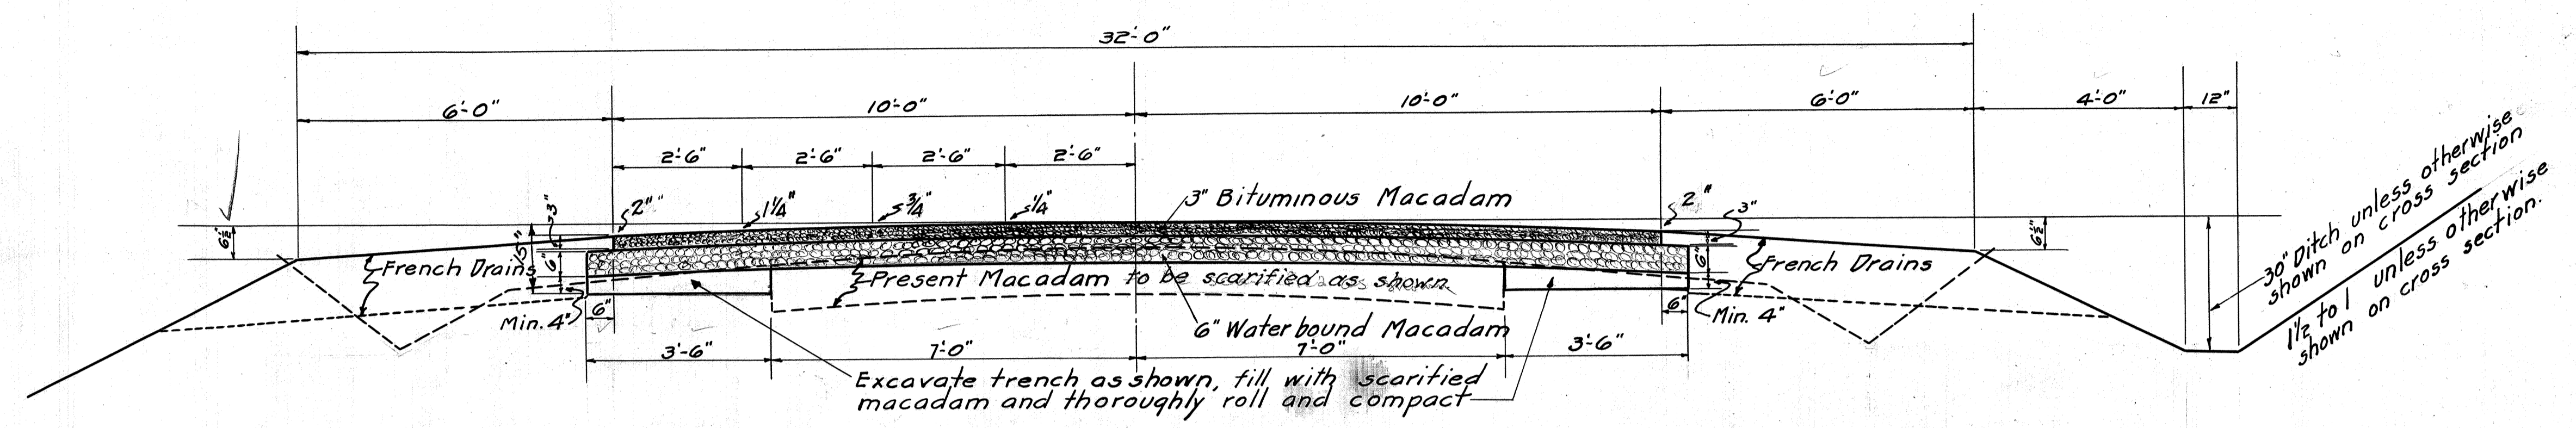 32'-0"
6'-0"
10'-0"
10'-0"
6'-0"
4'-0"
12"
2'-6"
2'-6"
2'-6"
2'-6"
2"
1¼"
¾"
¼"
3" Bituminous Macadam
2"
3"
3"
6½"
15"
6"
6"
6½"
French Drains
Present Macadam to be scarified as shown.
French Drains
Min. 4"
6"
6" Waterbound Macadam
6"
Min. 4"
3'-6"
7'-0"
7'-0"
3'-6"
Excavate trench as shown, fill with scarified
macadam and thoroughly roll and compact
30" Ditch unless otherwise
shown on cross section
1½ to 1 unless otherwise
shown on cross section.